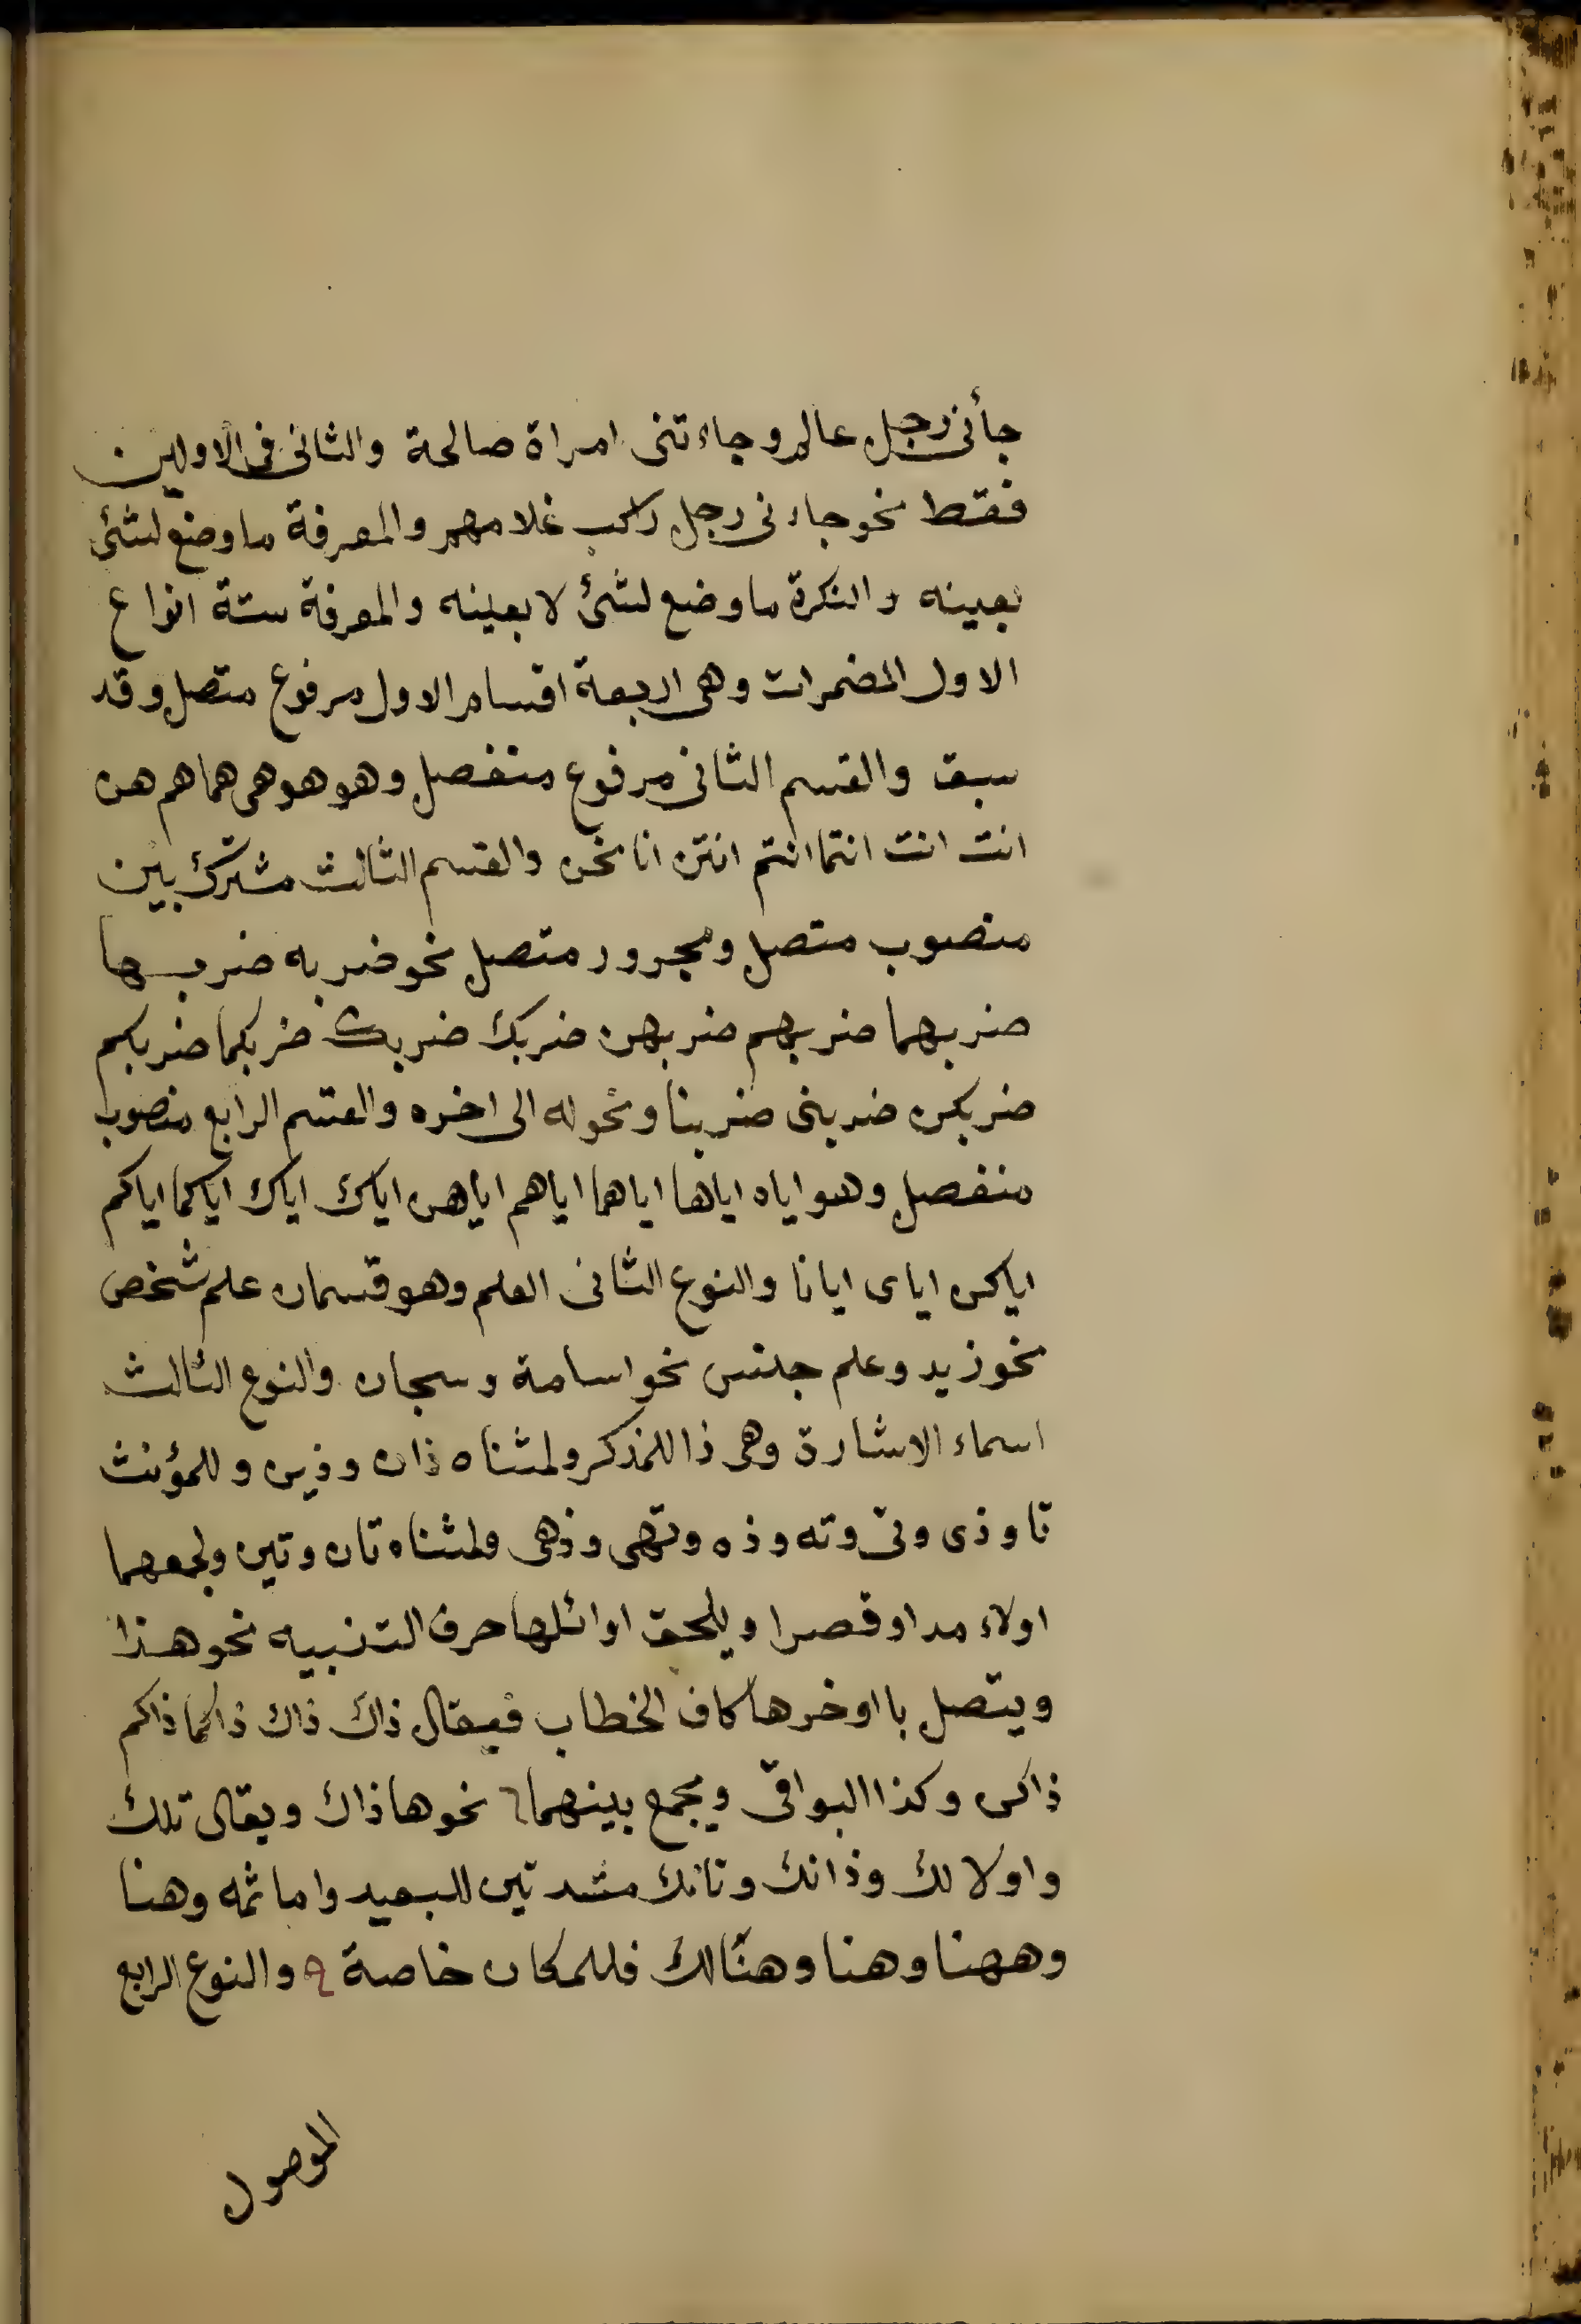 جأنى رجل عالم وجاءتنى امراة صالحة والثانى فى الاولين
فقط نحو جاءنى رجل راكب غلامهم والمعرفة ما وضع لشئ
بعينه والنكرة ما وضع لشئ لا بعينه والمعرفة ستة انواع
الاول المضمرات وهى اربعة اقسام الاول مرفوع متصل وقد
سبق والقسم الثانى مرفوع منفصل وهو هو هى هما هم هن
انت انت انتما انتم انتن انا نحن والقسم الثالث مشترك بين
منصوب متصل ومجرور متصل نحو ضربه ضربها
ضربهما ضربهم ضربهن ضربك ضربك ضربكما ضربكم
ضربكن ضربنى ضربنا ونحو له الى اخره والقسم الرابع منصوب
منفصل وهو اياه اياها اياهما اياهم اياهن اياك اياك اياكما اياكم
اياكن اياى ايانا والنوع الثانى العلم وهو قسمان علم شخص
نحو زيد وعلم جنس نحو اسامة وسبحان والنوع الثالث
اسماء الاشارة وهى ذا للمذكر ولمثناه ذان وذين وللمؤنث
تا وذى وتى وته وذه وتهى وذهى ولمثناه تان وتين ولجمعهما
اولاء مدا وقصرا ويلحق اوائلها حرف التنبيه نحو هذا
ويتصل با اوخرها كاف الخطاب فيقال ذاك ذاك ذاكما ذاكم
ذاكن وكذا البواقى ويجمع بينهما نحو هاذاك ويقال تلك
واولالك وذانك وتانك مشدتين للبعيد واما ثمه وهنا
وههنا وهنا وهنالك فللمكان خاصة والنوع الرابع
الموصول